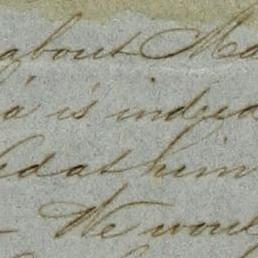 about Ma
a is indeed
ed at him
We woul